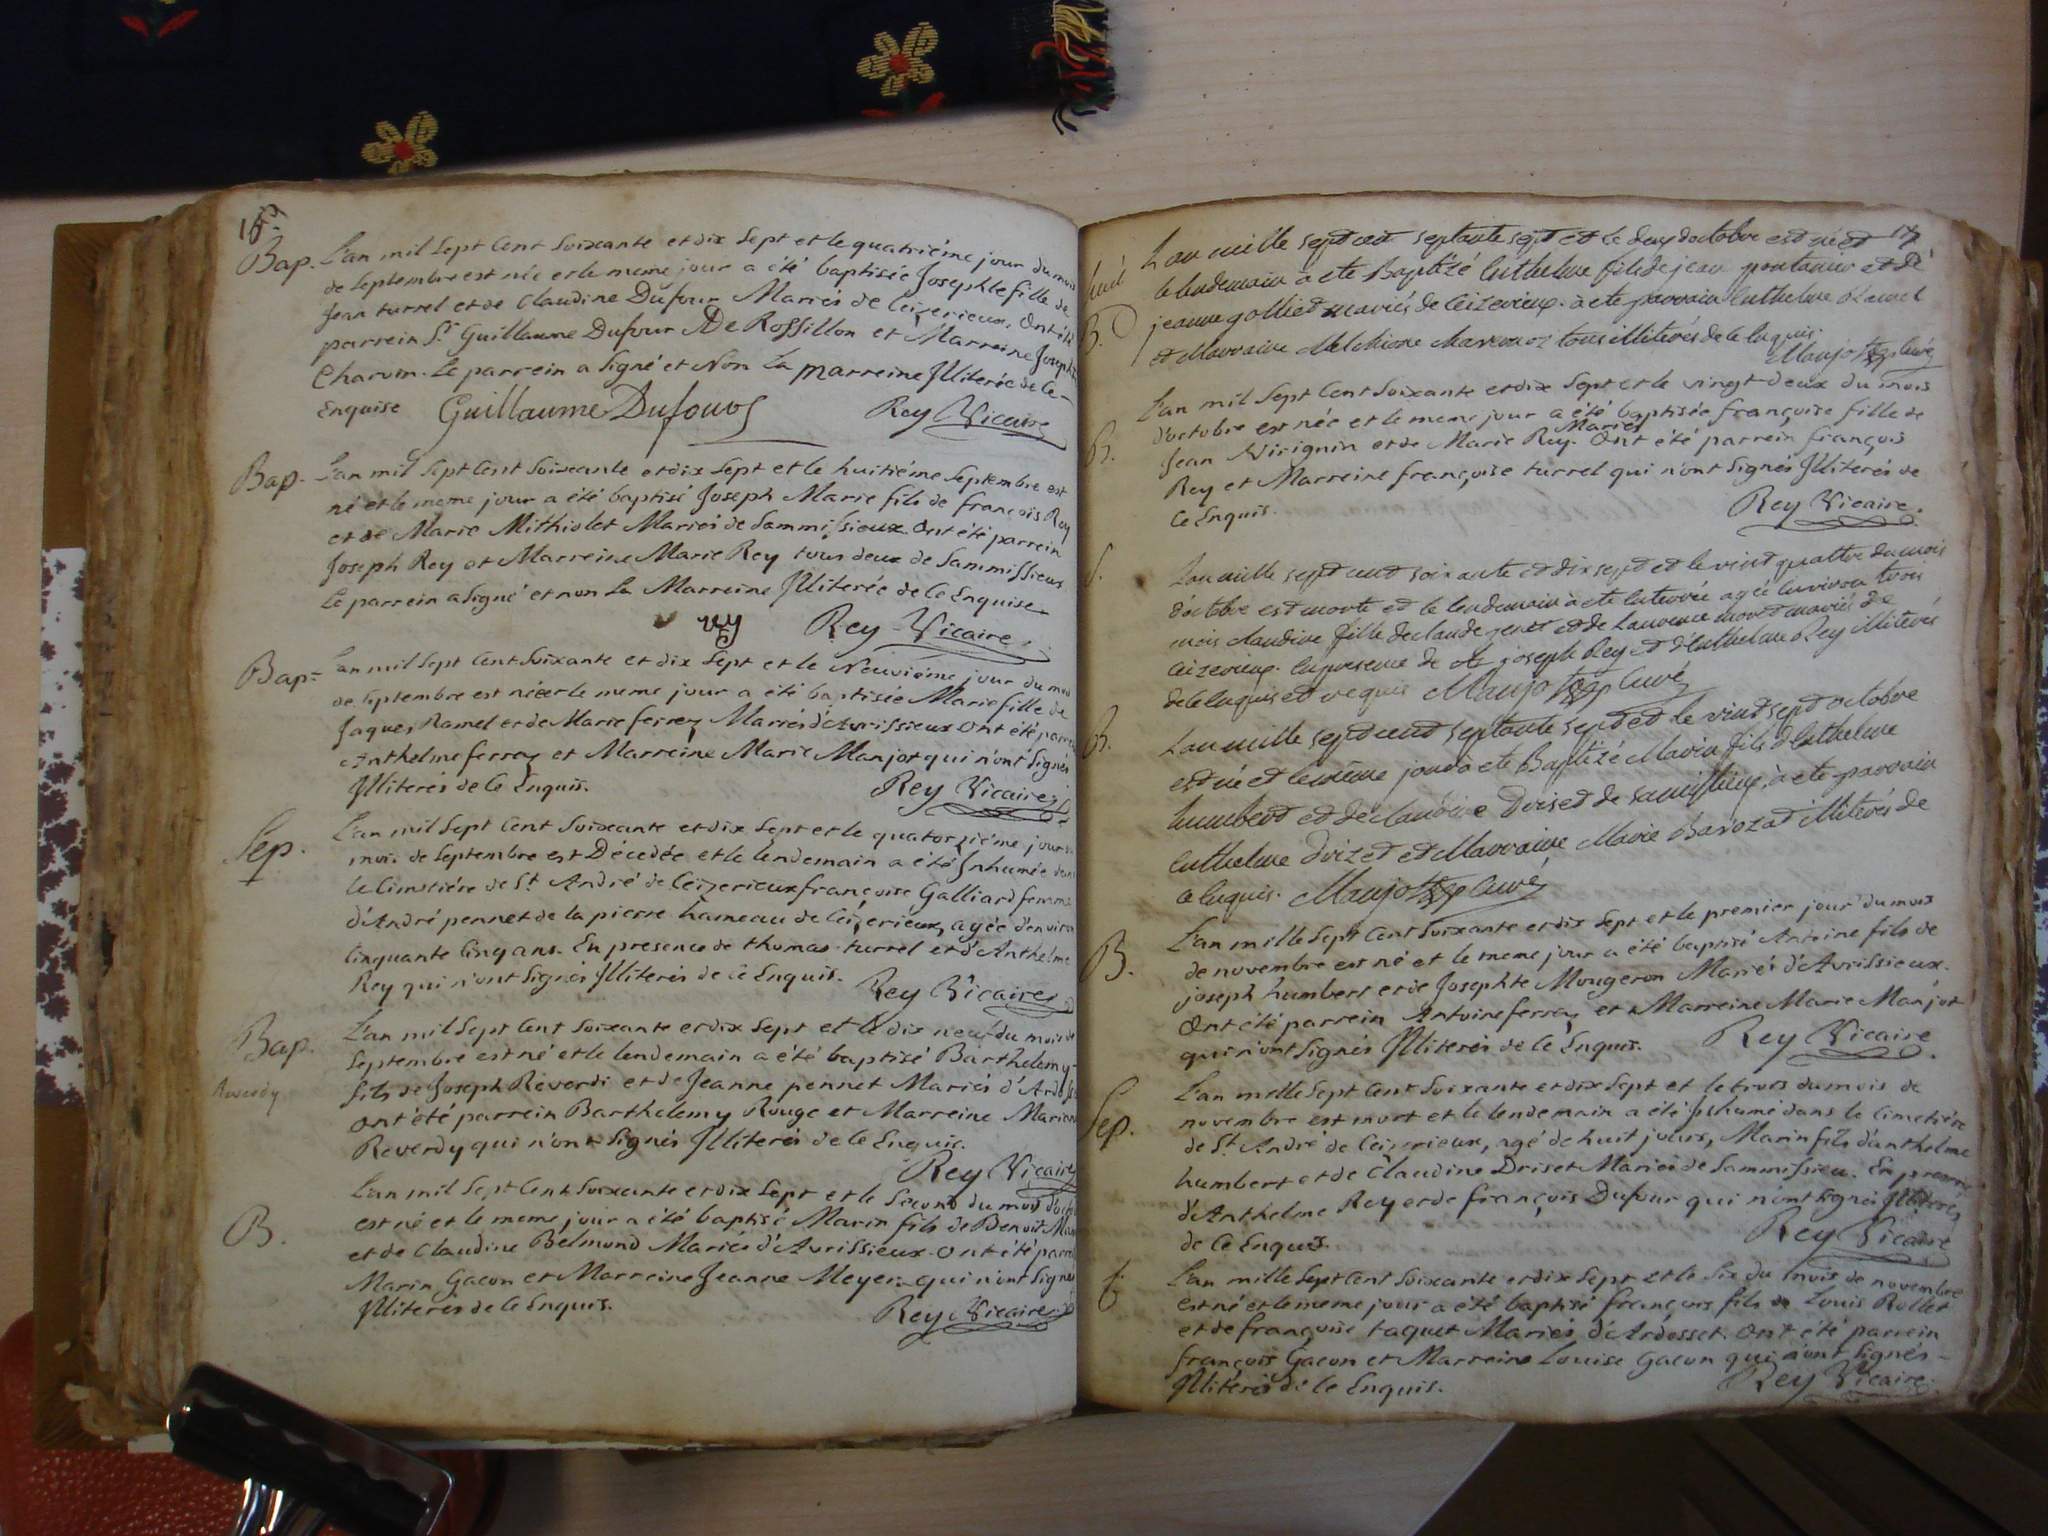 Bap. L'an mil Sept Cent Soixante et dix Sept et le quatriéme jour du mois
de Septembre est née et le meme jour a été baptisée Josephte fille de
Jean turrel et de Claudine Dufour Mariés de Ceizerieux, Ont été
parrein Sr. Guillaume Dufour De Rossillon et Marreine Josephte
Charvin. Le parrein a Signé et Non La marreine Illiterée de Ce
Enquise Guillaume Dufour Rey Vicaire
Bap. L'an mil Sept Cent Soixante et dix Sept et le huitiéme Septembre est
né et le meme jour a été baptisé Joseph Marie fils de françois Rey
et de Marie Mithiolet Mariés de Sammissieux. Ont été parrein
Joseph Rey et Marreine Marie Rey tous deux de Sammissieux
Le parrein a Signé et non La Marreine Illiterée de Ce Enquise
Rey Vicaire.
Bap. L'an mil Sept Cent Soixante et dix Sept et le Neuviéme jour du mois
de Septembre est née et le meme jour a été baptisée Marie fille de
Jaques Ramel et de Marie ferrez Mariés d'Avrissieux Ont été parrein
Anthelme ferraz et Marreine Marie Manjot qui n'ont Signés
Illiterés de Ce Enquis. Rey Vicaire
Sep. L'an mil Sept Cent Soixante et dix Sept et le quatorziéme jour du
mois de Septembre est Décedée et le lendemain a été Inhumée dans
le Cimetiére de St. André de Ceizerieux françoise Galliard femme
d'André pennet de la pierre hameau de Ceizerieux, agée d'environ
Cinquante Cinq ans. En presence de thomas turrel et d'Anthelme
Rey qui n'ont Signés Illiterés de Ce Enquis. Rey Vicaire
Bap. L'an mil Sept Cent Soixante et dix Sept et le dix neuf du mois de
Septembre est né et le lendemain a été baptisé Barthelemy
Reverdy fils de Joseph Reverdi et de Jeanne pennet Mariés
Ont été parrein Barthelemy Rouge et Marreine
Reverdy qui n'ont Signés Illiterés de Ce Enquis.
Rey Vicaire
L'an mil Sept Cent Soixante et dix Sept et le Second du mois
B. est né et le meme jour a été baptisé Marin fils de Benoit
et de Claudine Belmond Mariés d'Avrissieux. Ont été parrein
Marin Gacon et Marreine Jeanne Meyer qui n'ont Signés
Illiterés de Ce Enquis. Rey Vicaire
17
L'an mille sept cent septante sept et le deux doctobre est né et
le lendemain à ete Baptizé Enthelme fils de jean pontanier et de
B. jeanne golliet mariés de Ceizerieux. à ete parrain Enthelme Ramel
et Marraine Melchione tous illiterés de ce enquis.
Manjot curé
L'an mil Sept Cent Soixante et dix Sept et le vingt deux du mois
d'octobre est née et le meme jour a été baptisée françoise fille de
B. Jean Virignin et de Marie Rey. Mariés Ont été parrein françois
Rey et Marreine françoise turrel qui n'ont Signés Illiterés de
Ce Enquis. Rey Vicaire.
S. L'an mille sept cent soixante et dix sept et le vint quattre du mois
d'octobre est morte et le lendemain à ete enterrée agée environ trois
mois Claudine fille de claude genet et de Laurence moret mariés de
Ceizerieux. en presence de joseph Rey et d'Enthelme Rey illiterés
de ce enquis et requis Manjot curé
B. L'an mille sept cent septante sept et le vint sept octobre
est né et le même jour à ete Baptizé Marin fils d'Enthelme
humbert et de claudine Driset de samissieux, à ete parrain
Enthelme Drizet et Marraine Marie Barozat illiterés de
ce enquis. Manjot curé
B. L'an mille Sept Cent Soixante et dix Sept et le premier jour du mois
de novembre est né et le meme jour a été baptisé Antoine fils de
joseph humbert et de Josephte Mougeron Mariés d'Avrissieux.
Ont été parrein Antoine ferraz et Marreine Marie Manjot
qui n'ont Signés Illiterés de Ce Enquis. Rey Vicaire
L'an mille Sept Cent Soixante et dix Sept et le trois du mois de
Sep. novembre est mort et le lendemain a été Inhumé dans le Cimetiére
de St. André de Ceizerieux, agé de huit jours, Marin fils d'anthelme
humbert et de Claudine Driset Mariés de Sammissieu. En presence
d'Anthelme Rey et de françois Dufour qui n'ont Signés Illiterés
de Ce Enquis. Rey Vicaire
L'an mille Sept Cent Soixante et dix Sept et le Six du mois de novembre
est né et le meme jour a été baptisé françois fils de Louis Rollet
et de françoise taquet Mariés d'Ardosset. Ont été parrein
françois Gacon et Marreine Louise Gacon qui n'ont Signés
Illiterés de Ce Enquis. Rey Vicaire.